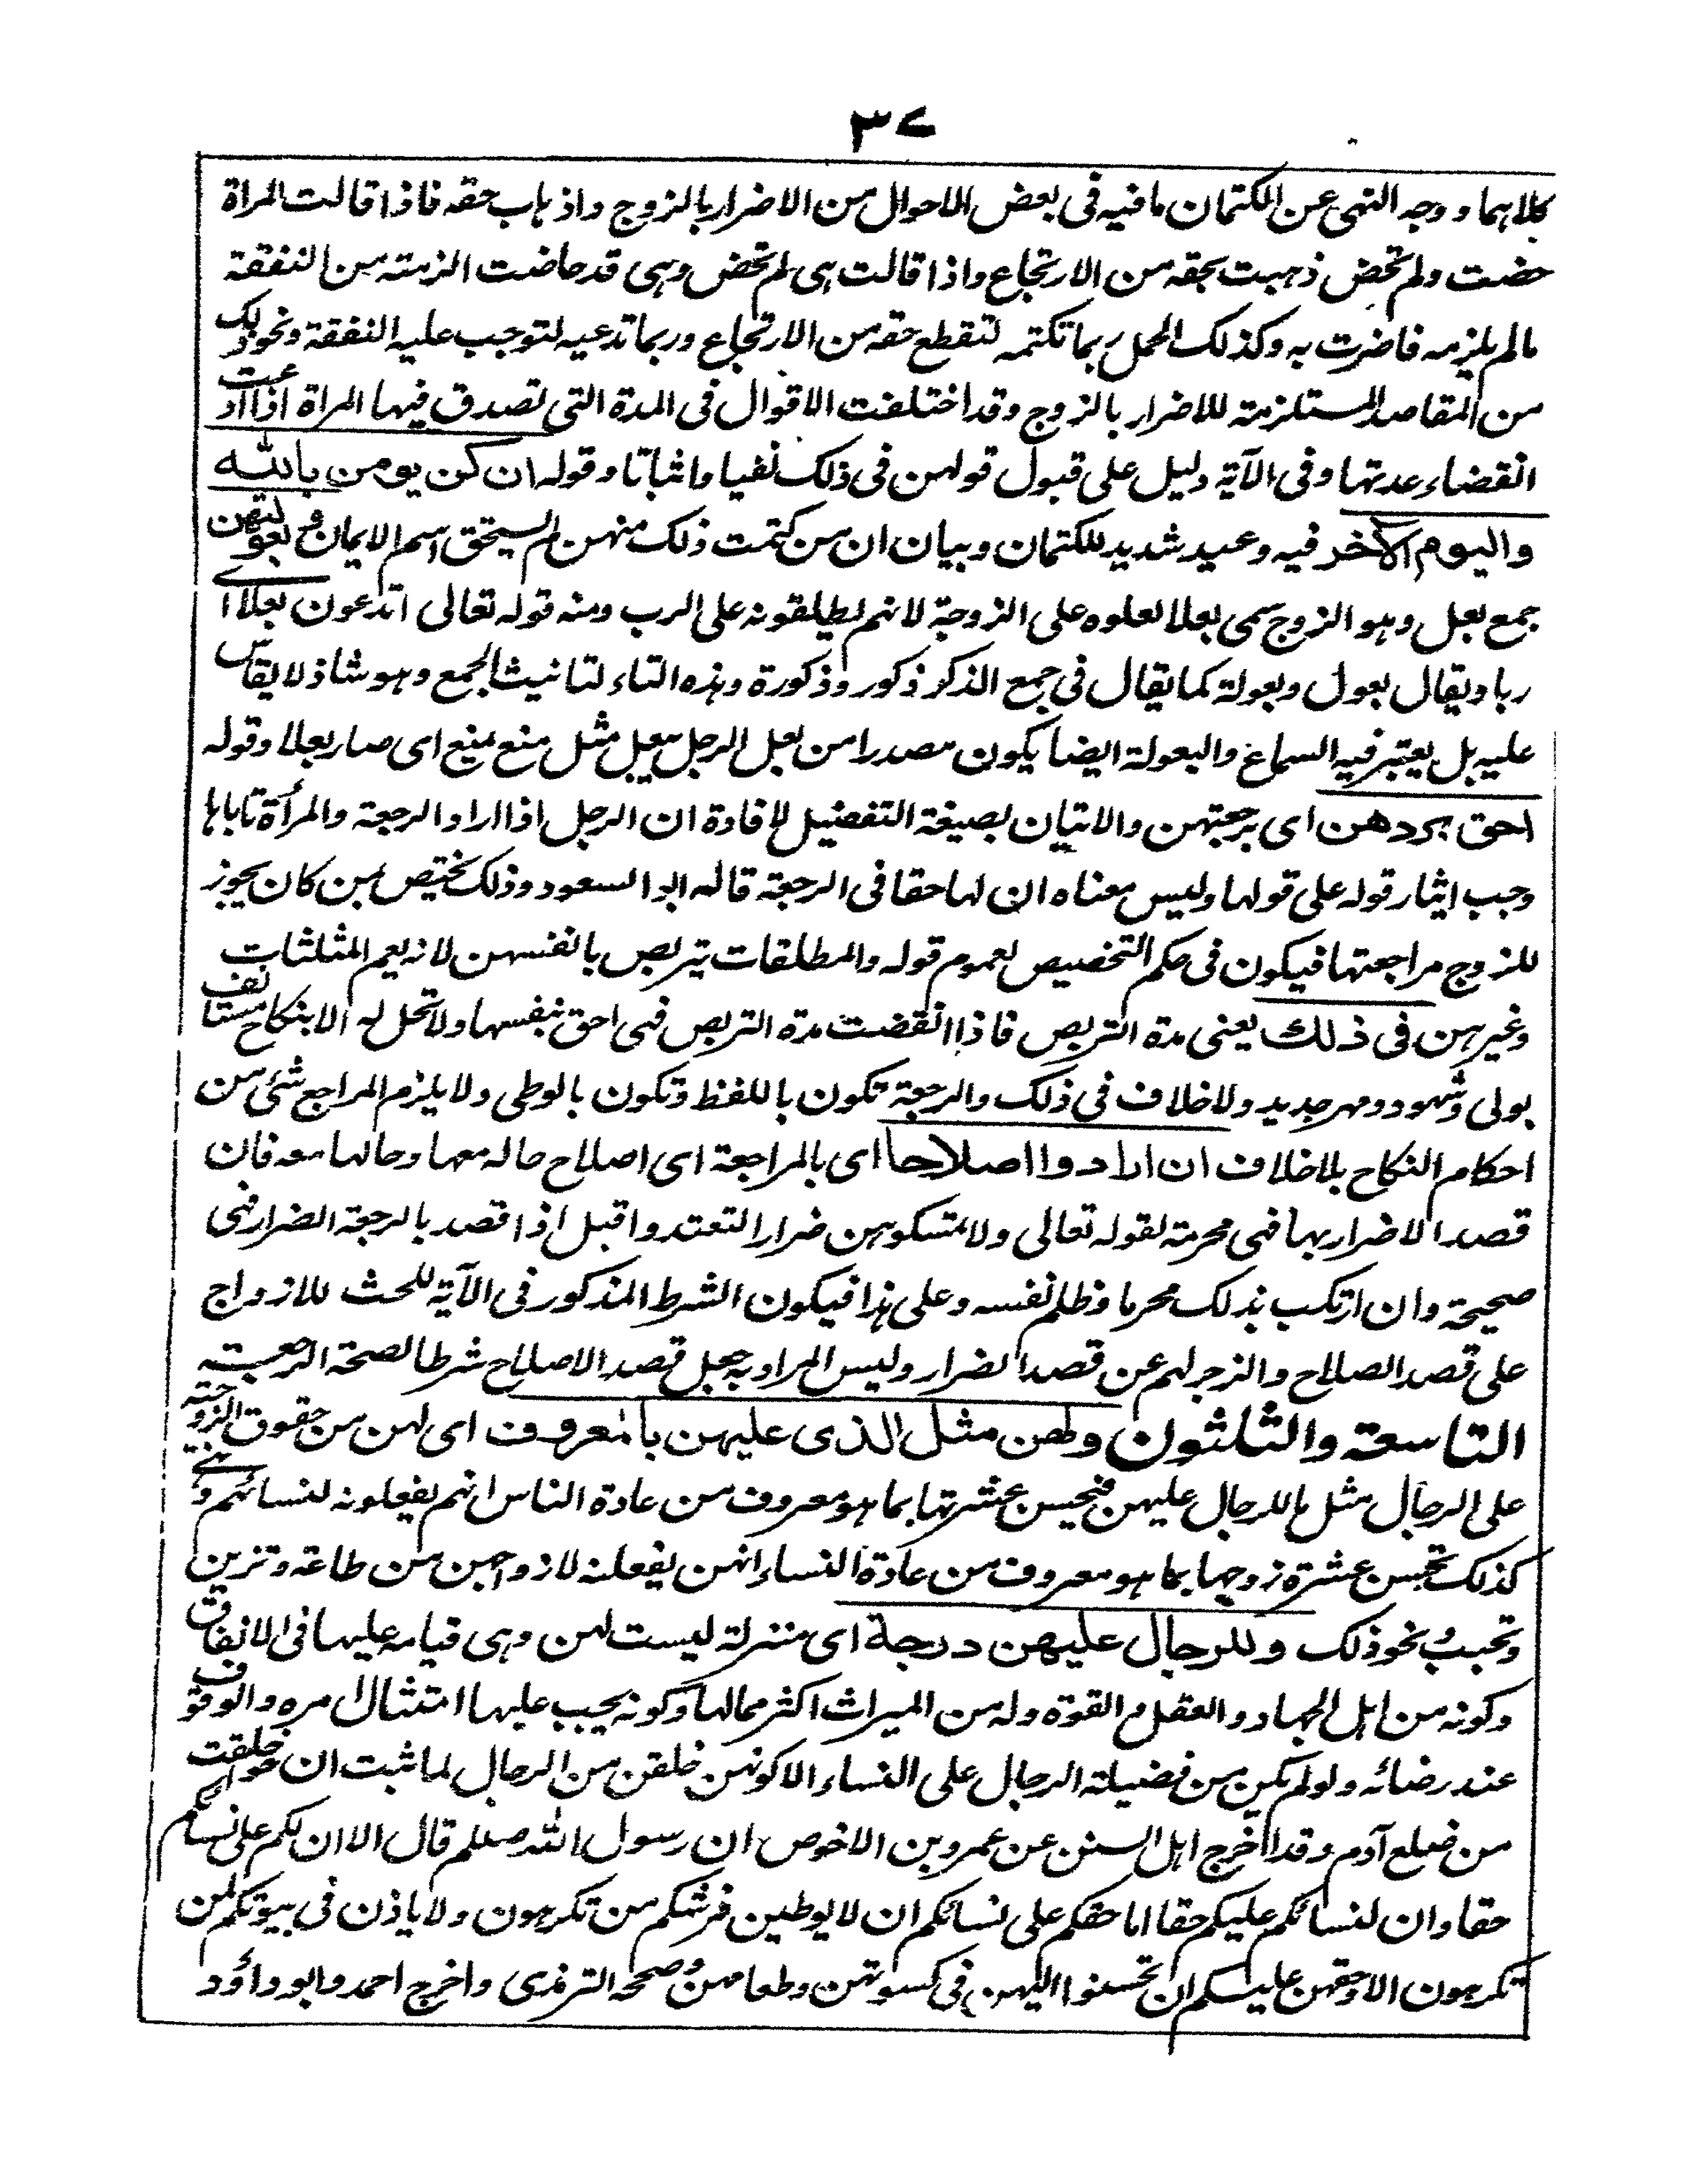 ٣٧
كلاهما ووجه النهي عن الكتمان ما فيه في بعض الاحوال من الاضرار بالزوج واذهاب حقه فاذا قالت المراة
حضت ولم تحض ذهبت بحقه من الارتجاع واذا قالت هي لم تحض وهي قد حاضت الزمته من النفقة
مالم يلزمه فاضرت به وكذلك الحمل ربما تكتمه لتقطع حقه من الارتجاع وربما تدعيه لتوجب عليه النفقة ونحو ذلك
من المقاصد المستلزمة للاضرار بالزوج وقد اختلفت الاقوال في المدة التي تصدق فيها المراة اذا ادعت
انقضاء عدتها وفي الآية دليل على قبول قولهن في ذلك نفيا واثباتا وقوله ان كن يومن بالله
واليوم الآخر فيه وعيد شديد للكتمان وبيان ان من كتمت ذلك منهن لم يستحق اسم الايمان وبعولتهن
جمع بعل وهو الزوج سمى بعلا لعلوه على الزوجة لانهم يطلقونه على الرب ومنه قوله تعالى اتدعون بعلا اي
ربا ويقال بعول وبعولة كما يقال في جمع الذكر ذكور وذكورة وهذه التاء لتانيث الجمع وهو شاذ لا يقاس
عليه بل يعتبر فيه السماع والبعولة ايضا يكون مصدرا من بعل الرجل يبعل مثل منع يمنع اى صار بعلا وقوله
احق بردهن اى برجعتهن والاتيان بصيغة التفضيل لافادة ان الرجل اذا اراد الرجعة والمرأة تاباها
وجب ايثار قوله على قولها وليس معناه ان لها حقا في الرجعة قاله ابو السعود وذلك يختص بمن كان يجوز
للزوج مراجعتها فيكون في حكم التخصيص لعموم قوله والمطلقات يتربصن بانفسهن لانه يعم المثلثات
وغيرهن في ذلك يعنى مدة التربص فاذا انقضت مدة التربص فهى احق بنفسها ولا تحل له الا بنكاح مستانف
بولى وشهود ومهر جديد ولا خلاف في ذلك والرجعة تكون باللفظ وتكون بالوطى ولا يلزم المراجع شئ من
احكام النكاح بلا خلاف ان ارادوا اصلاحا اى بالمراجعة اى اصلاح حاله معها وحالها معه فان
قصد الاضرار بها فهى محرمة لقوله تعالى ولا تمسكوهن ضرارا لتعتدوا قيل اذا قصد بالرجعة الضرار فهى
صحيحة وان ارتكب بذلك محرما وظلم نفسه وعلى هذا فيكون الشرط المذكور في الآية للحث للازواج
على قصد الصلاح والزجر لهم عن قصد الضرار وليس المراد به جعل قصد الاصلاح شرطا لصحة الرجعة
التاسعة والثلثون ولهن مثل الذى عليهن بالمعروف اى لهن من حقوق الزوجية
على الرجال مثل ما للرجال عليهن فيحسن عشرتها بما هو معروف من عادة الناس انهم يفعلونه لنسائهم وهي
كذلك تحسن عشرة زوجها بما هو معروف من عادة النساء انهن يفعلنه لازواجهن من طاعة وتزين
وتحبب ونحو ذلك وللرجال عليهن درجة اى منزلة ليست لهن وهى قيامه عليها في الانفاق
وكونه من اهل الجهاد والعقل والقوة وله من الميراث اكثر مما لها وكونه يجب عليها امتثال امره والوقوف
عند رضائه ولو لم يكن من فضيلة الرجال على النساء الا كونهن خلقن من الرجال لما ثبت ان حواء خلقت
من ضلع آدم وقد اخرج اهل السنن عن عمرو بن الاحوص ان رسول الله صللم قال الا ان لكم على نسائكم
حقا وان لنسائكم عليكم حقا اما حقكم على نسائكم ان لا يوطين فرشكم من تكرهون ولا ياذن في بيوتكم لمن
تكرهون الا وحقهن عليكم ان تحسنوا اليهن في كسوتهن وطعامهن وصححه الترمذى واخرج احمد وابو داؤد